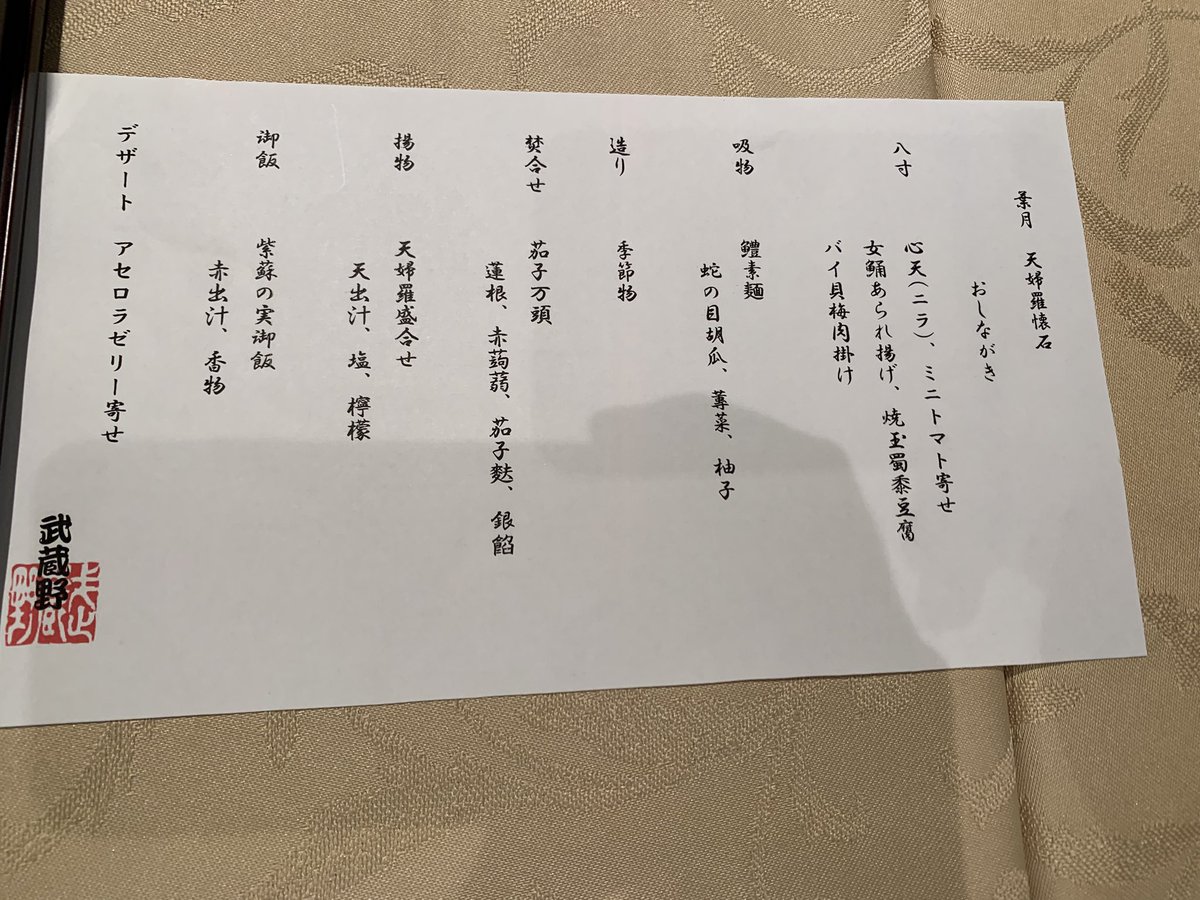 葉月　天婦羅懐石
おしながき
八寸　心天(ニラ)、ミニトマト寄せ
女鯒あられ揚げ、焼玉蜀黍豆腐
バイ貝梅肉掛け
吸物　鱧素麺
蛇の目胡瓜、蓴菜、柚子
造り　季節物
焚合せ　茄子万頭
蓮根、赤蒟蒻、茄子麩、銀餡
揚物　天婦羅盛合せ
天出汁、塩、檸檬
御飯　紫蘇の実御飯
赤出汁、香物
デザート　アセロラゼリー寄せ
武蔵野